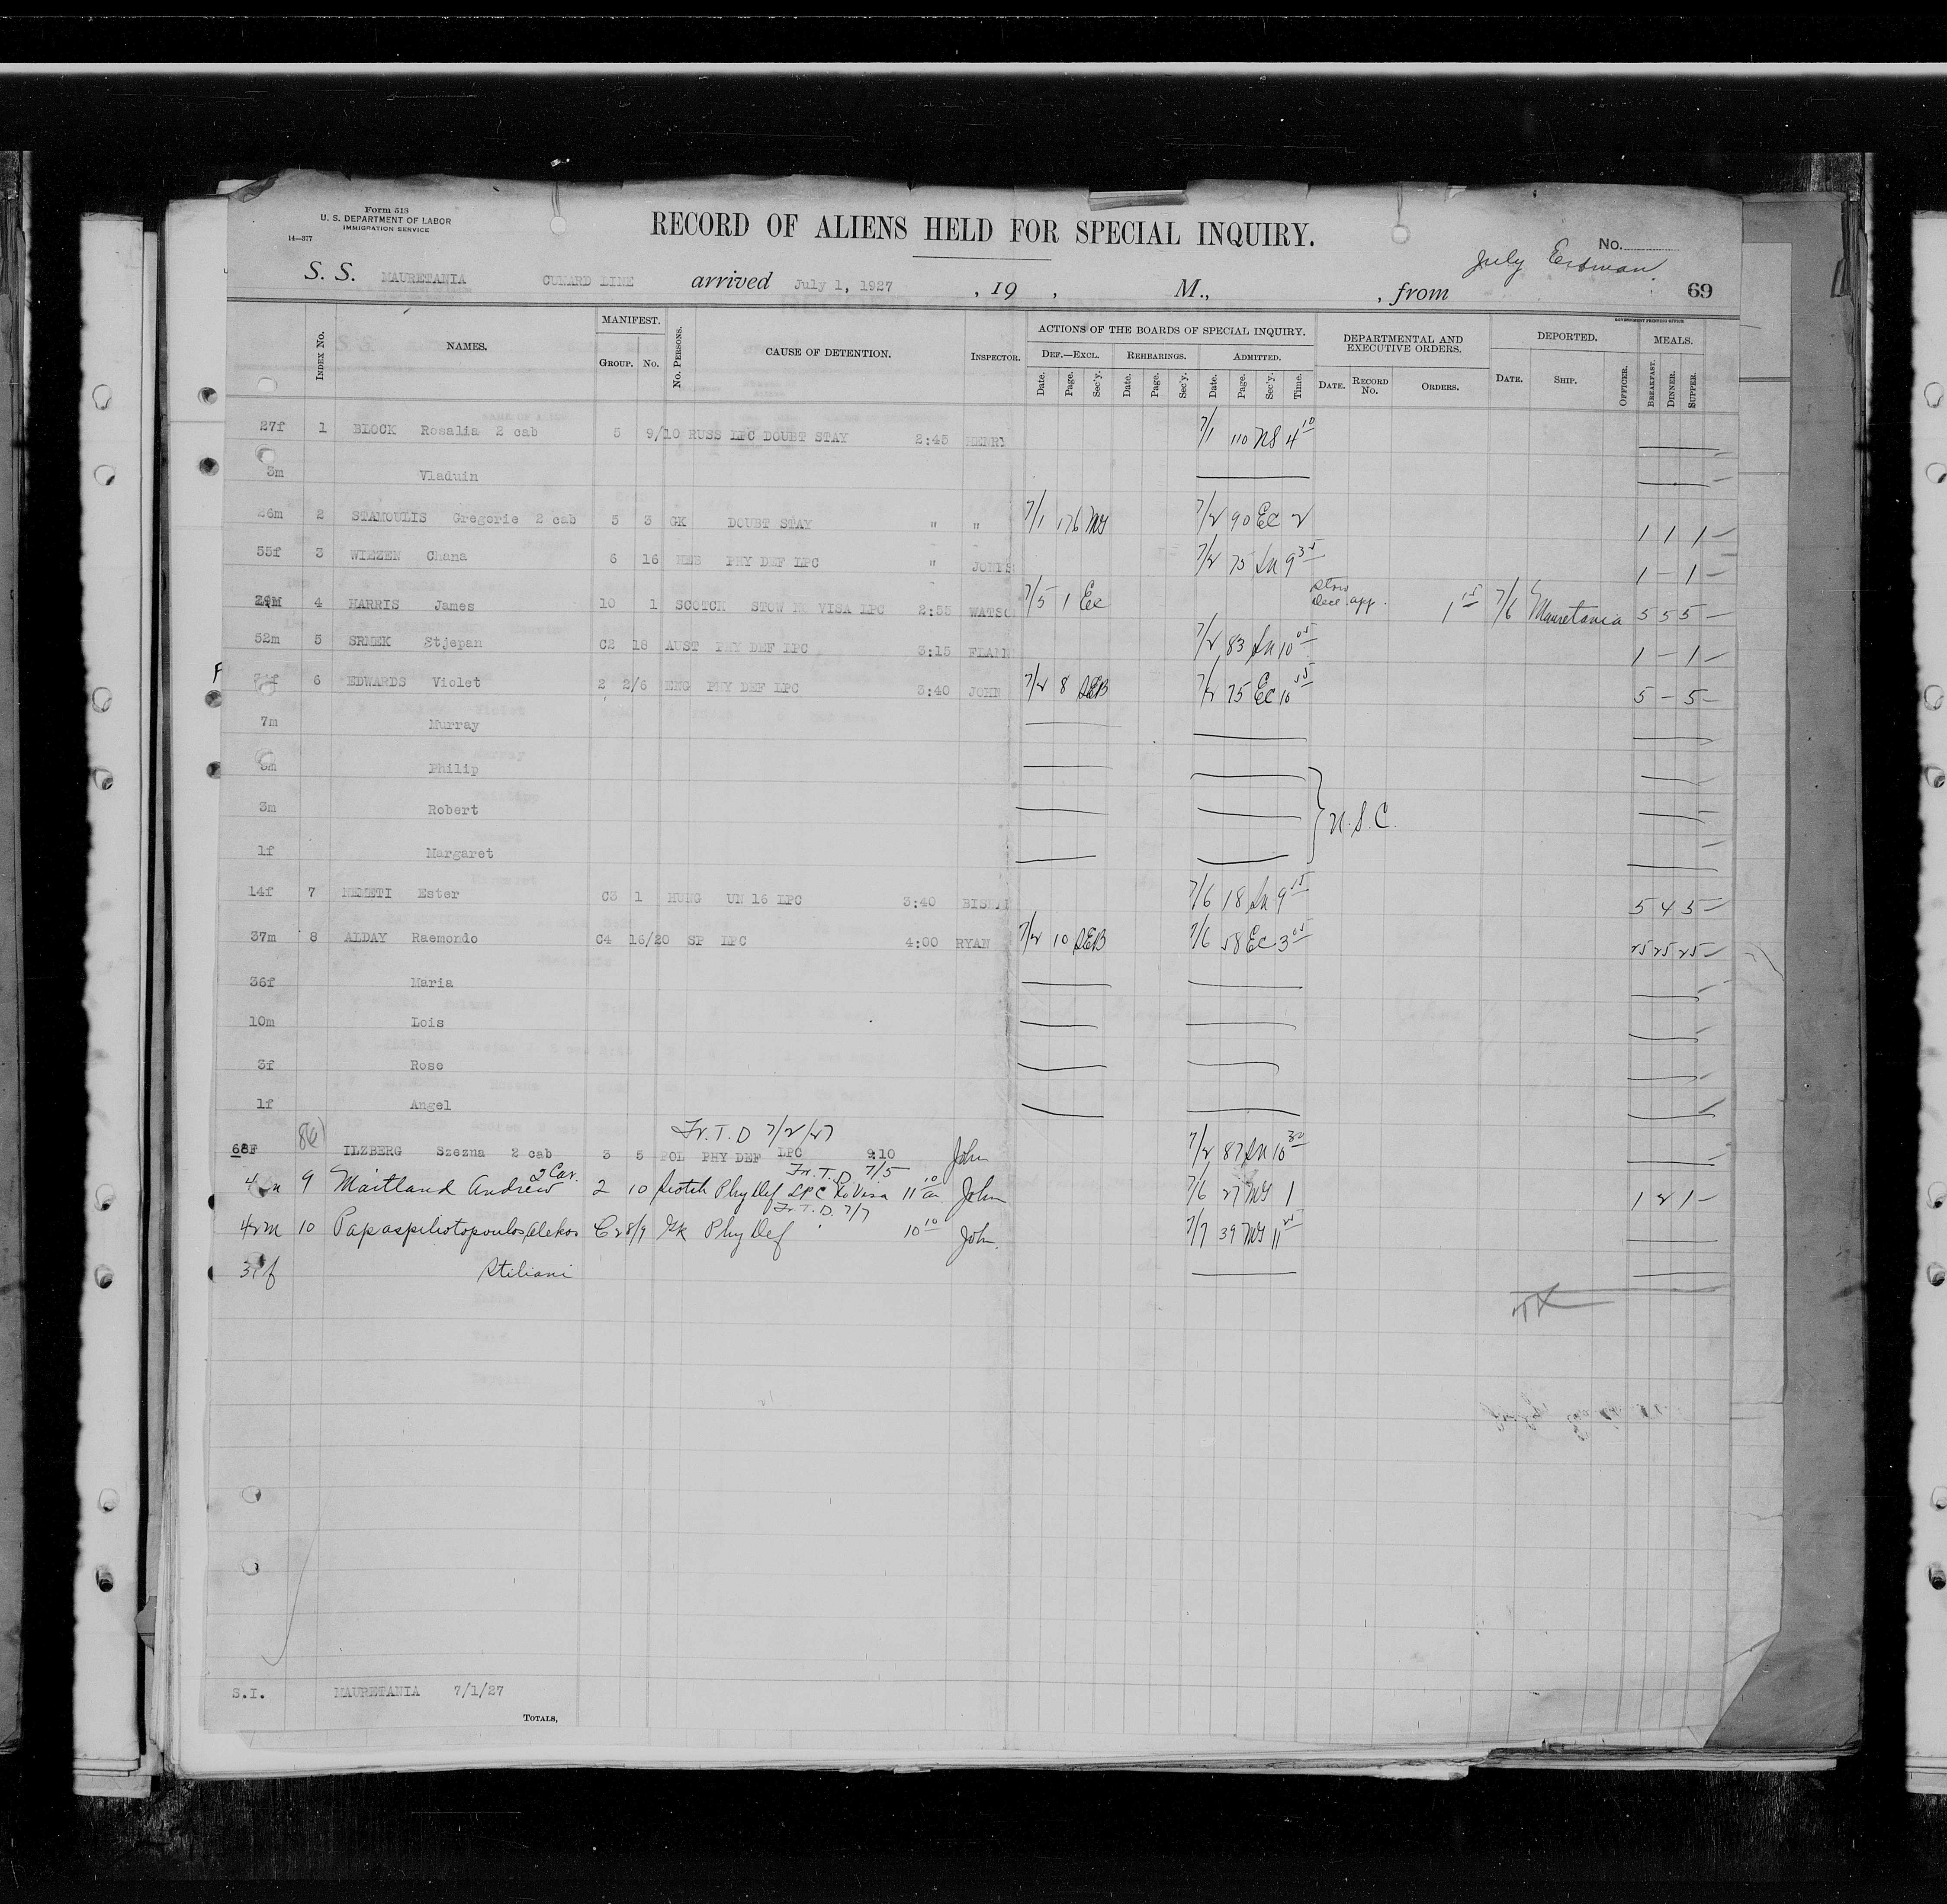 Form 518
U. S. DEPARTMENT OF LABOR
IMMIGRATION SERVICE
14—377
RECORD OF ALIENS HELD FOR SPECIAL INQUIRY.
No.
July
S. S. MAURETANIA CUNARD LINE arrived July 1, 1927 , 19 , M., , from 69
GOVERNMENT PRINTING OFFICE
Index No. NAMES. MANIFEST. Group. No. No. Persons. CAUSE OF DETENTION. Inspector. ACTIONS OF THE BOARDS OF SPECIAL INQUIRY. DEPARTMENTAL AND EXECUTIVE ORDERS. DEPORTED. MEALS.
Def.—Excl. Rehearings. Admitted.
Date. Page. Sec'y. Date. Page. Sec'y. Date. Page. Sec'y. Time. Date. Record No. Orders. Date. Ship. Officer. Breakfast. Dinner. Supper.
27f 1 BLOCK Rosalia 2 cab 5 9/10 RUSS LPC DOUBT STAY 2:45 HENRY 7/1 110 NS 4 10
3m Vladuin
26m 2 STAMOULIS Gregorie 2 cab 5 3 GK DOUBT STAY " " 7/1 176 MG 7/2 90 EC 2 1 1 1 —
55f 3 WIEZEN Chana 6 16 HEB PHY DEF LPC " 7/2 75 9 35 1 — 1 —
4 HARRIS James 10 1 SCOTCH STOW NO VISA LPC 2:55 WATSO 7/5 1 EC Stow Decl. app. 1 15 7/6 Mauretania 5 5 5 —
52m 5 SRMEK Stjepan C2 18 AUST PHY DEF LPC 3:15 7/2 83 10 05 1 — 1 —
6 EDWARDS Violet 2 2/6 ENG PHY DEF LPC 3:40 JOHN 7/2 8 SEB 7/2 75 EC 10 55 5 — 5 —
7m Murray
Philip
3m Robert N.S.C.
1f Margaret
14f 7 NEMETI Ester C3 1 HUNG UN 16 LPC 3:40 7/6 18 9 15 5 4 5 —
37m 8 ALDAY Raemondo C4 16/20 SP LPC 4:00 RYAN 7/2 10 SEB 7/6 58 EC 3 05 25 25 25 —
36f Maria
10m Lois
3f Rose
1f Angel
Fr. T. D 7/2/27
68F 8(6) ILZBERG Szezna 2 cab 3 5 POL PHY DEF LPC 9:10 John 7/2 87 10 30
Fr. T. D. 7/5
9 Maitland Andrew 2 Cab. 2 10 Scotch Phy Def LPC No Visa 11 10 am John 7/6 27 MG 1 1 2 1 —
Fr. T. D. 7/7
42m 10 Papaspiliotopoulos Alekos C2 8/9 Gk Phy Def 10 10 John. 7/7 39 MG 11 25
31f Stiliani
S.I. MAURETANIA 7/1/27
Totals,